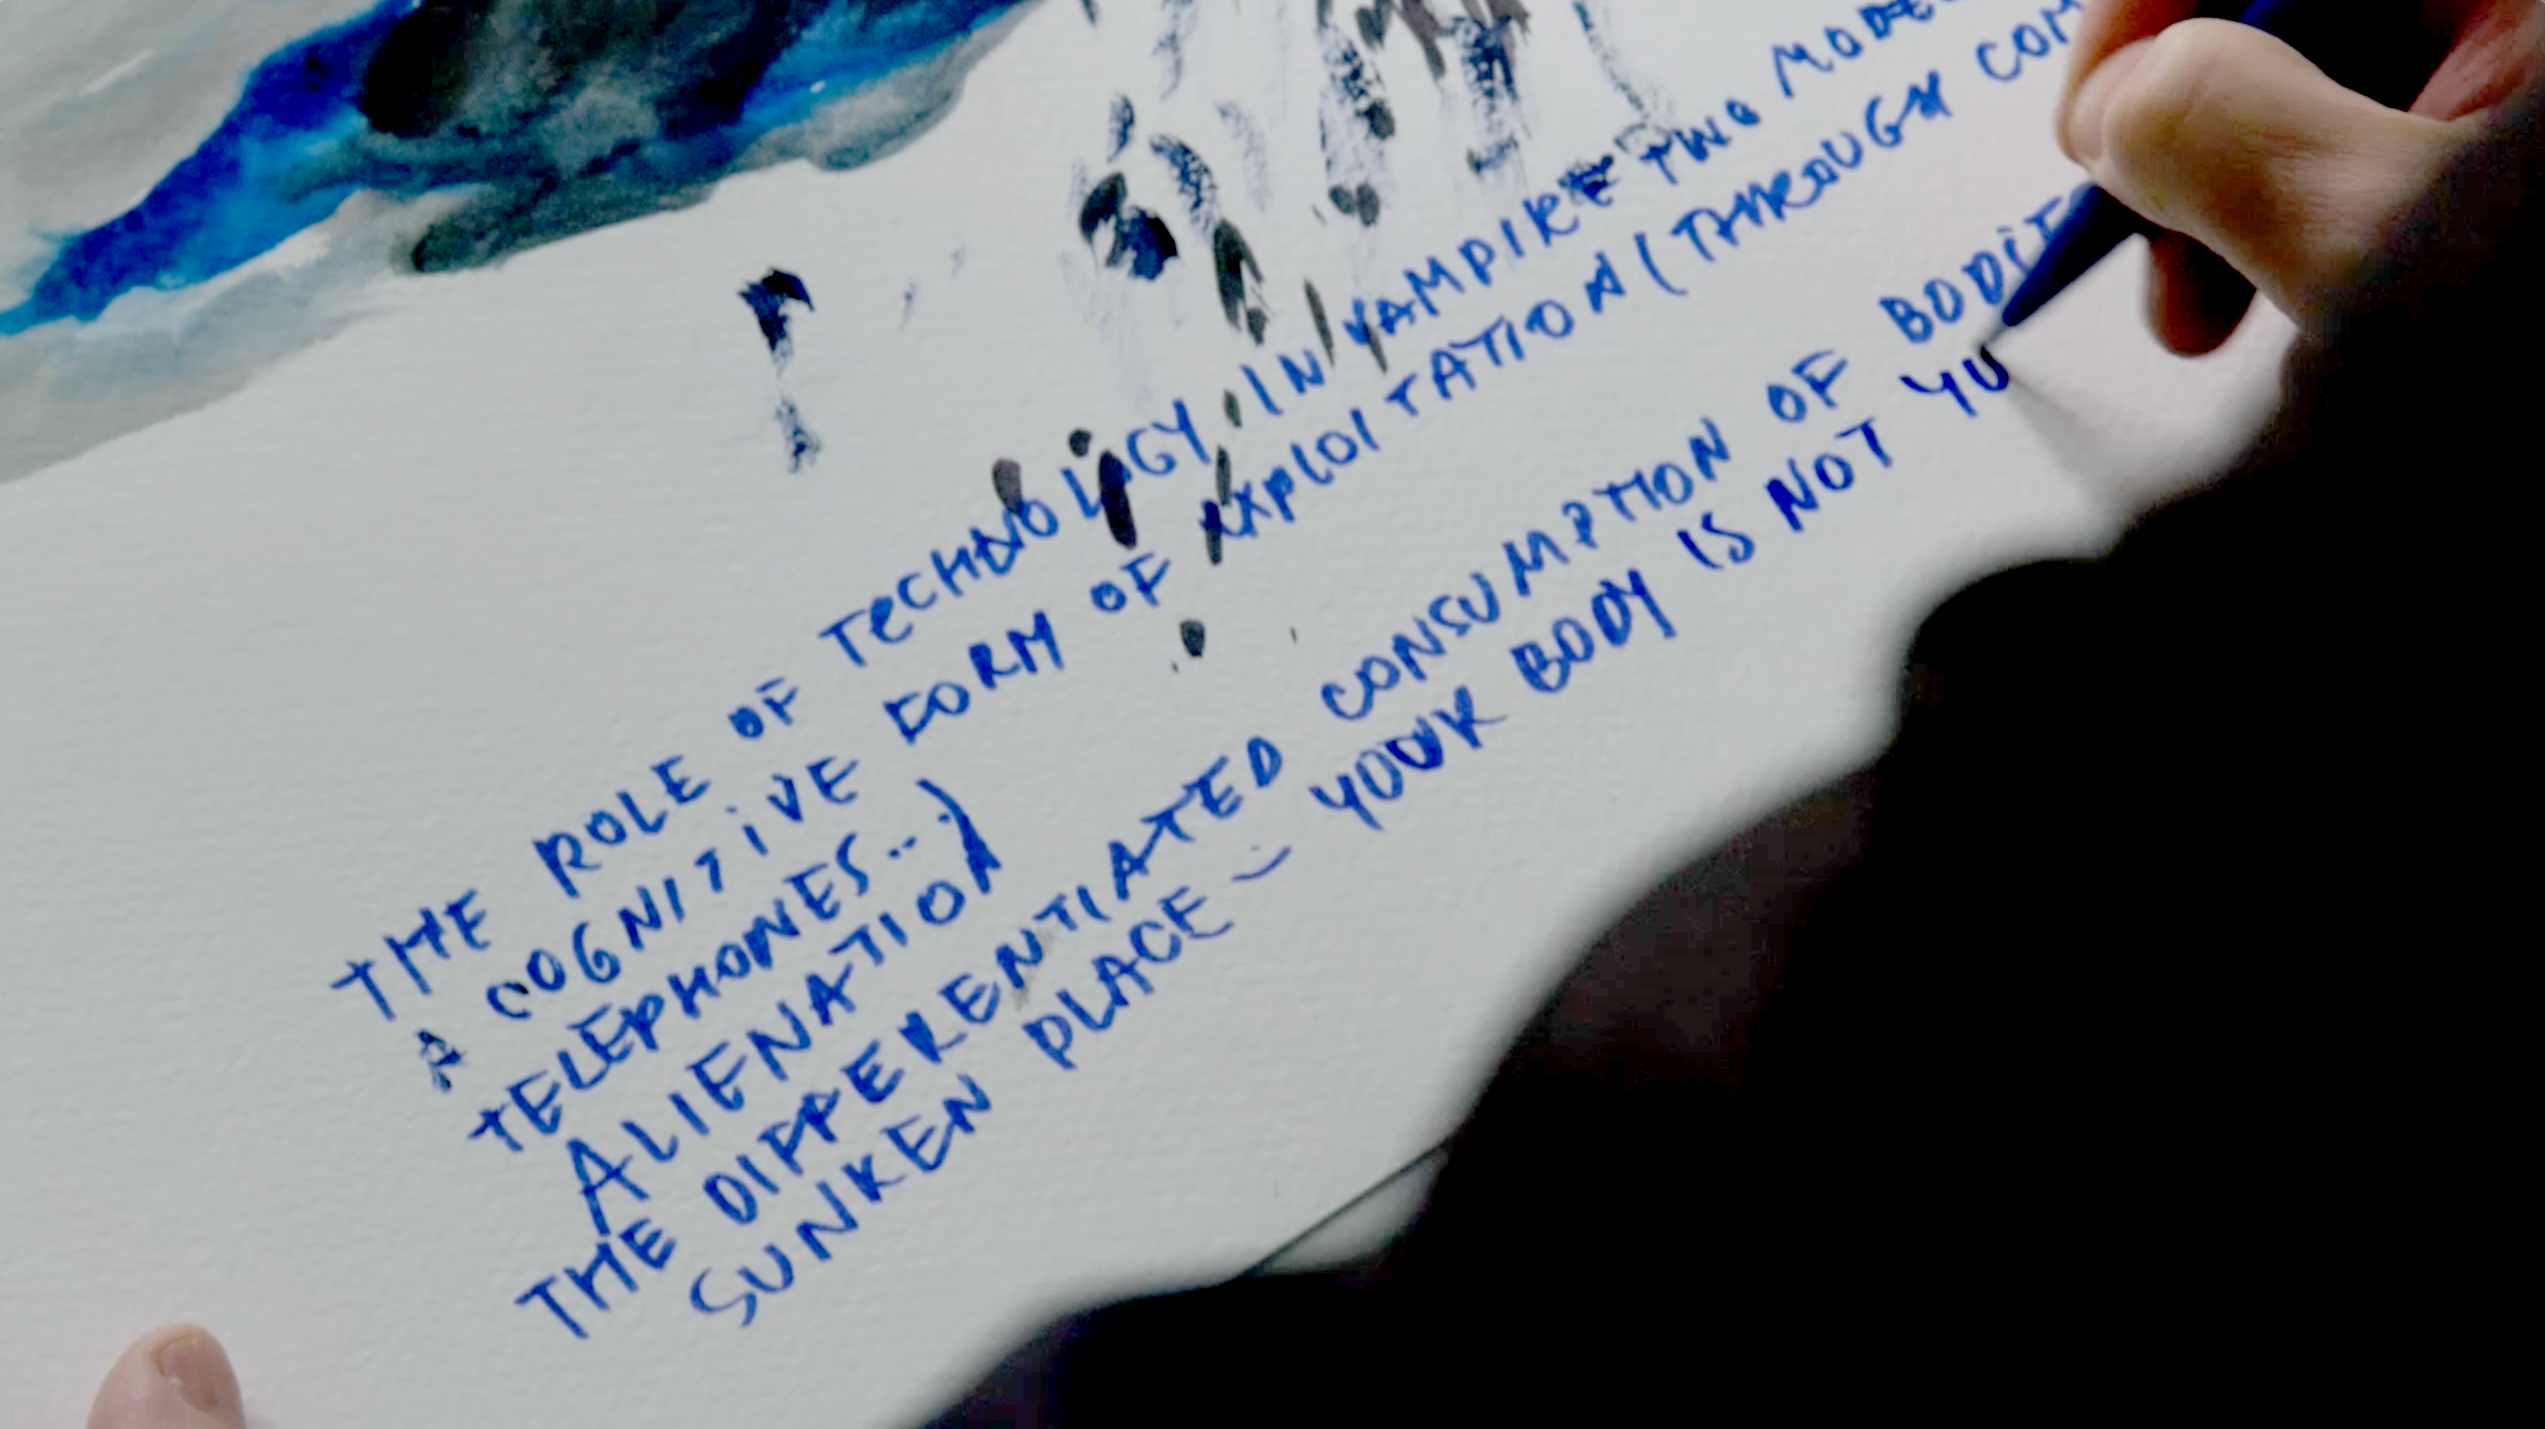 THE ROLE OF TECHNOLOGY IN VAMPIRE TWO
A COGNITIVE FORM OF EXPLOITATION (THROUGH
TELEPHONES...)
ALIENATION
THE DIFFERENTIATED CONSUMPTION OF
SUNKEN PLACE – YOUR BODY IS NOT YU